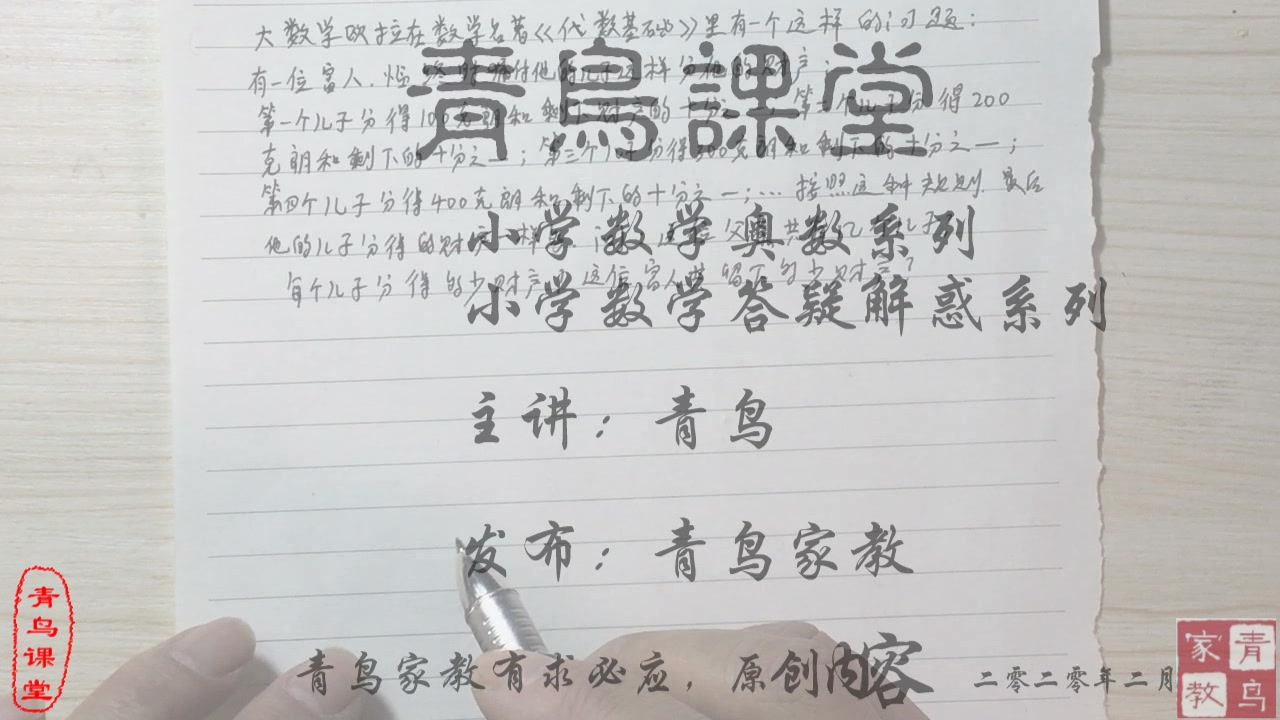 大数学欧拉在数学名著《代数基础》里有一个这样的问题：
有一位富人，临终时嘱付他的儿子这样分他的财产：
第一个儿子分得100克朗和剩下财产的十分之一；第二个儿子分得200
克朗和剩下的十分之一；第三个儿子分得300克朗和剩下的十分之一；
第四个儿子分得400克朗和剩下的十分之一；……按照这种规则，最后
他的儿子分得的财产一样多，父共儿子
每个儿子分得多少财产？这位富人共留下多少财产？
青鸟課堂
小学数学奥数系列
小学数学答疑解惑系列
主讲：青鸟
发布：青鸟家教
青鸟家教有求必应，原创内容
二零二零年二月
青鸟课堂
青鸟家教